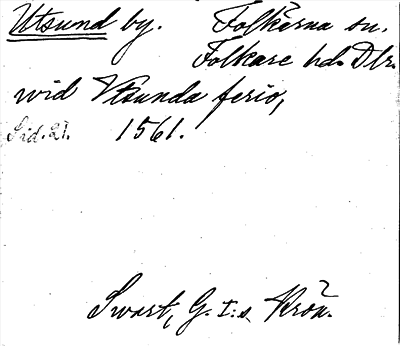 Utsund by. Folkärna sn.
Folkare hd. Dlr.
wid Vtsunda ferio,
Sid. 21. 1561.
Swart, G. I:s Krön.